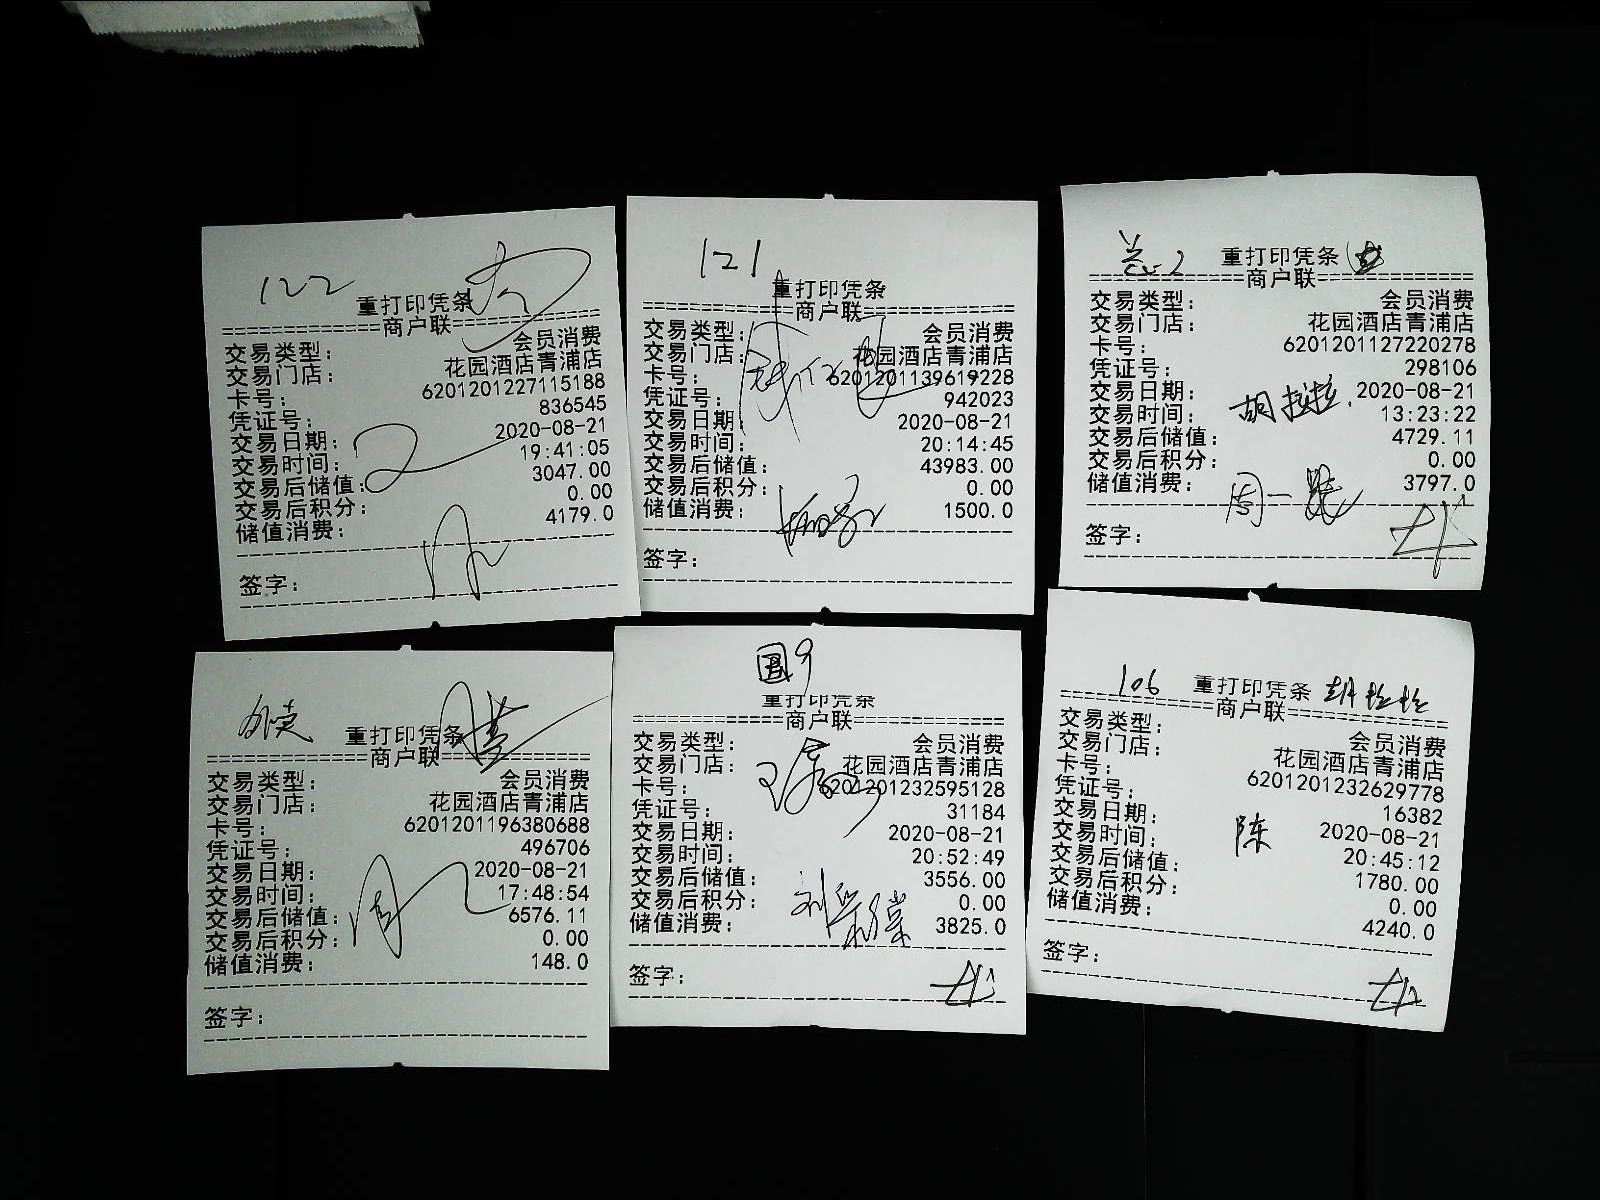 122
重打印凭条
商户联
交易类型: 会员消费
交易门店: 花园酒店青浦店
卡号: 6201201227115188
凭证号: 836545
交易日期: 2020-08-21
交易时间: 19:41:05
交易后储值: 3047.00
交易后积分: 0.00
储值消费: 4179.0
签字:
121
重打印凭条
商户联
交易类型: 会员消费
交易门店: 花园酒店青浦店
卡号: 6201201139619228
凭证号: 942023
交易日期: 2020-08-21
交易时间: 20:14:45
交易后储值: 43983.00
交易后积分: 0.00
储值消费: 1500.0
签字:
重打印凭条
商户联
交易类型: 会员消费
交易门店: 花园酒店青浦店
卡号: 6201201127220278
凭证号: 298106
交易日期: 2020-08-21
交易时间: 13:23:22
交易后储值: 4729.11
交易后积分: 0.00
储值消费: 3797.0
签字:
外卖
重打印凭条
商户联
交易类型: 会员消费
交易门店: 花园酒店青浦店
卡号: 6201201196380688
凭证号: 496706
交易日期: 2020-08-21
交易时间: 17:48:54
交易后储值: 6576.11
交易后积分: 0.00
储值消费: 148.0
签字:
国9
重打印凭条
商户联
交易类型: 会员消费
交易门店: 花园酒店青浦店
卡号: 6201201232595128
凭证号: 31184
交易日期: 2020-08-21
交易时间: 20:52:49
交易后储值: 3556.00
交易后积分: 0.00
储值消费: 3825.0
签字:
106 重打印凭条
商户联
交易类型: 会员消费
交易门店: 花园酒店青浦店
卡号: 6201201232629778
凭证号: 16382
交易日期: 2020-08-21
陈
交易时间: 20:45:12
交易后储值: 1780.00
交易后积分: 0.00
储值消费: 4240.0
签字: